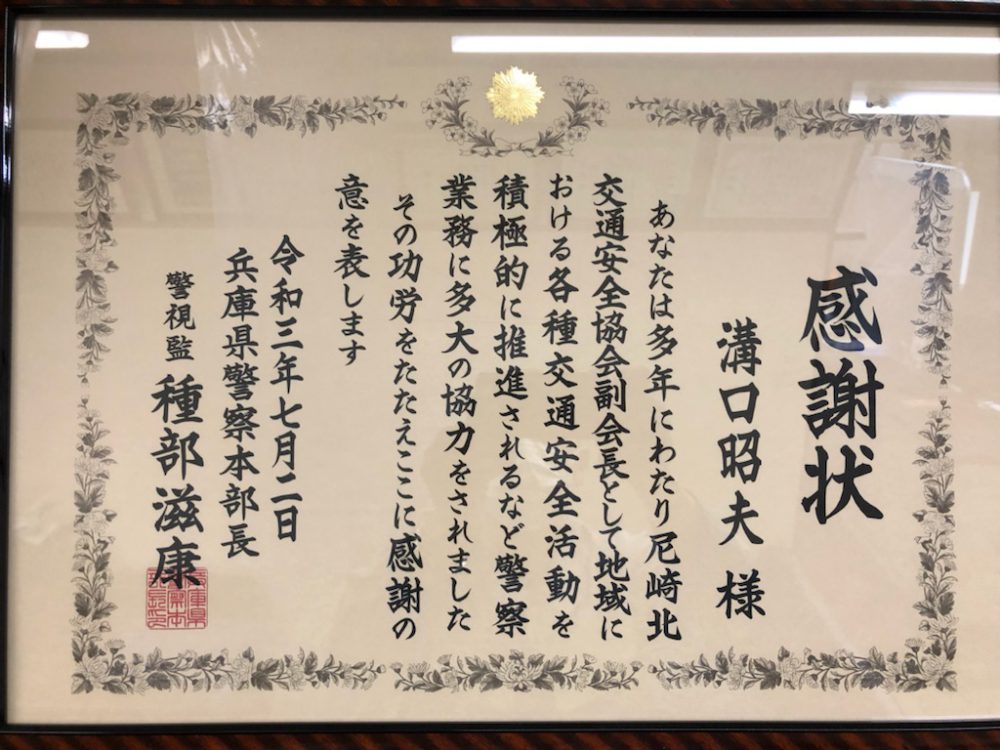 感謝状
溝口昭夫 様
あなたは多年にわたり尼崎北
交通安全協会副会長として地域に
おける各種交通安全活動を
積極的に推進されるなど警察
業務に多大の協力をされました
その功労をたたえここに感謝の
意を表します
令和三年七月二日
兵庫県警察本部長
警視監 種部滋康